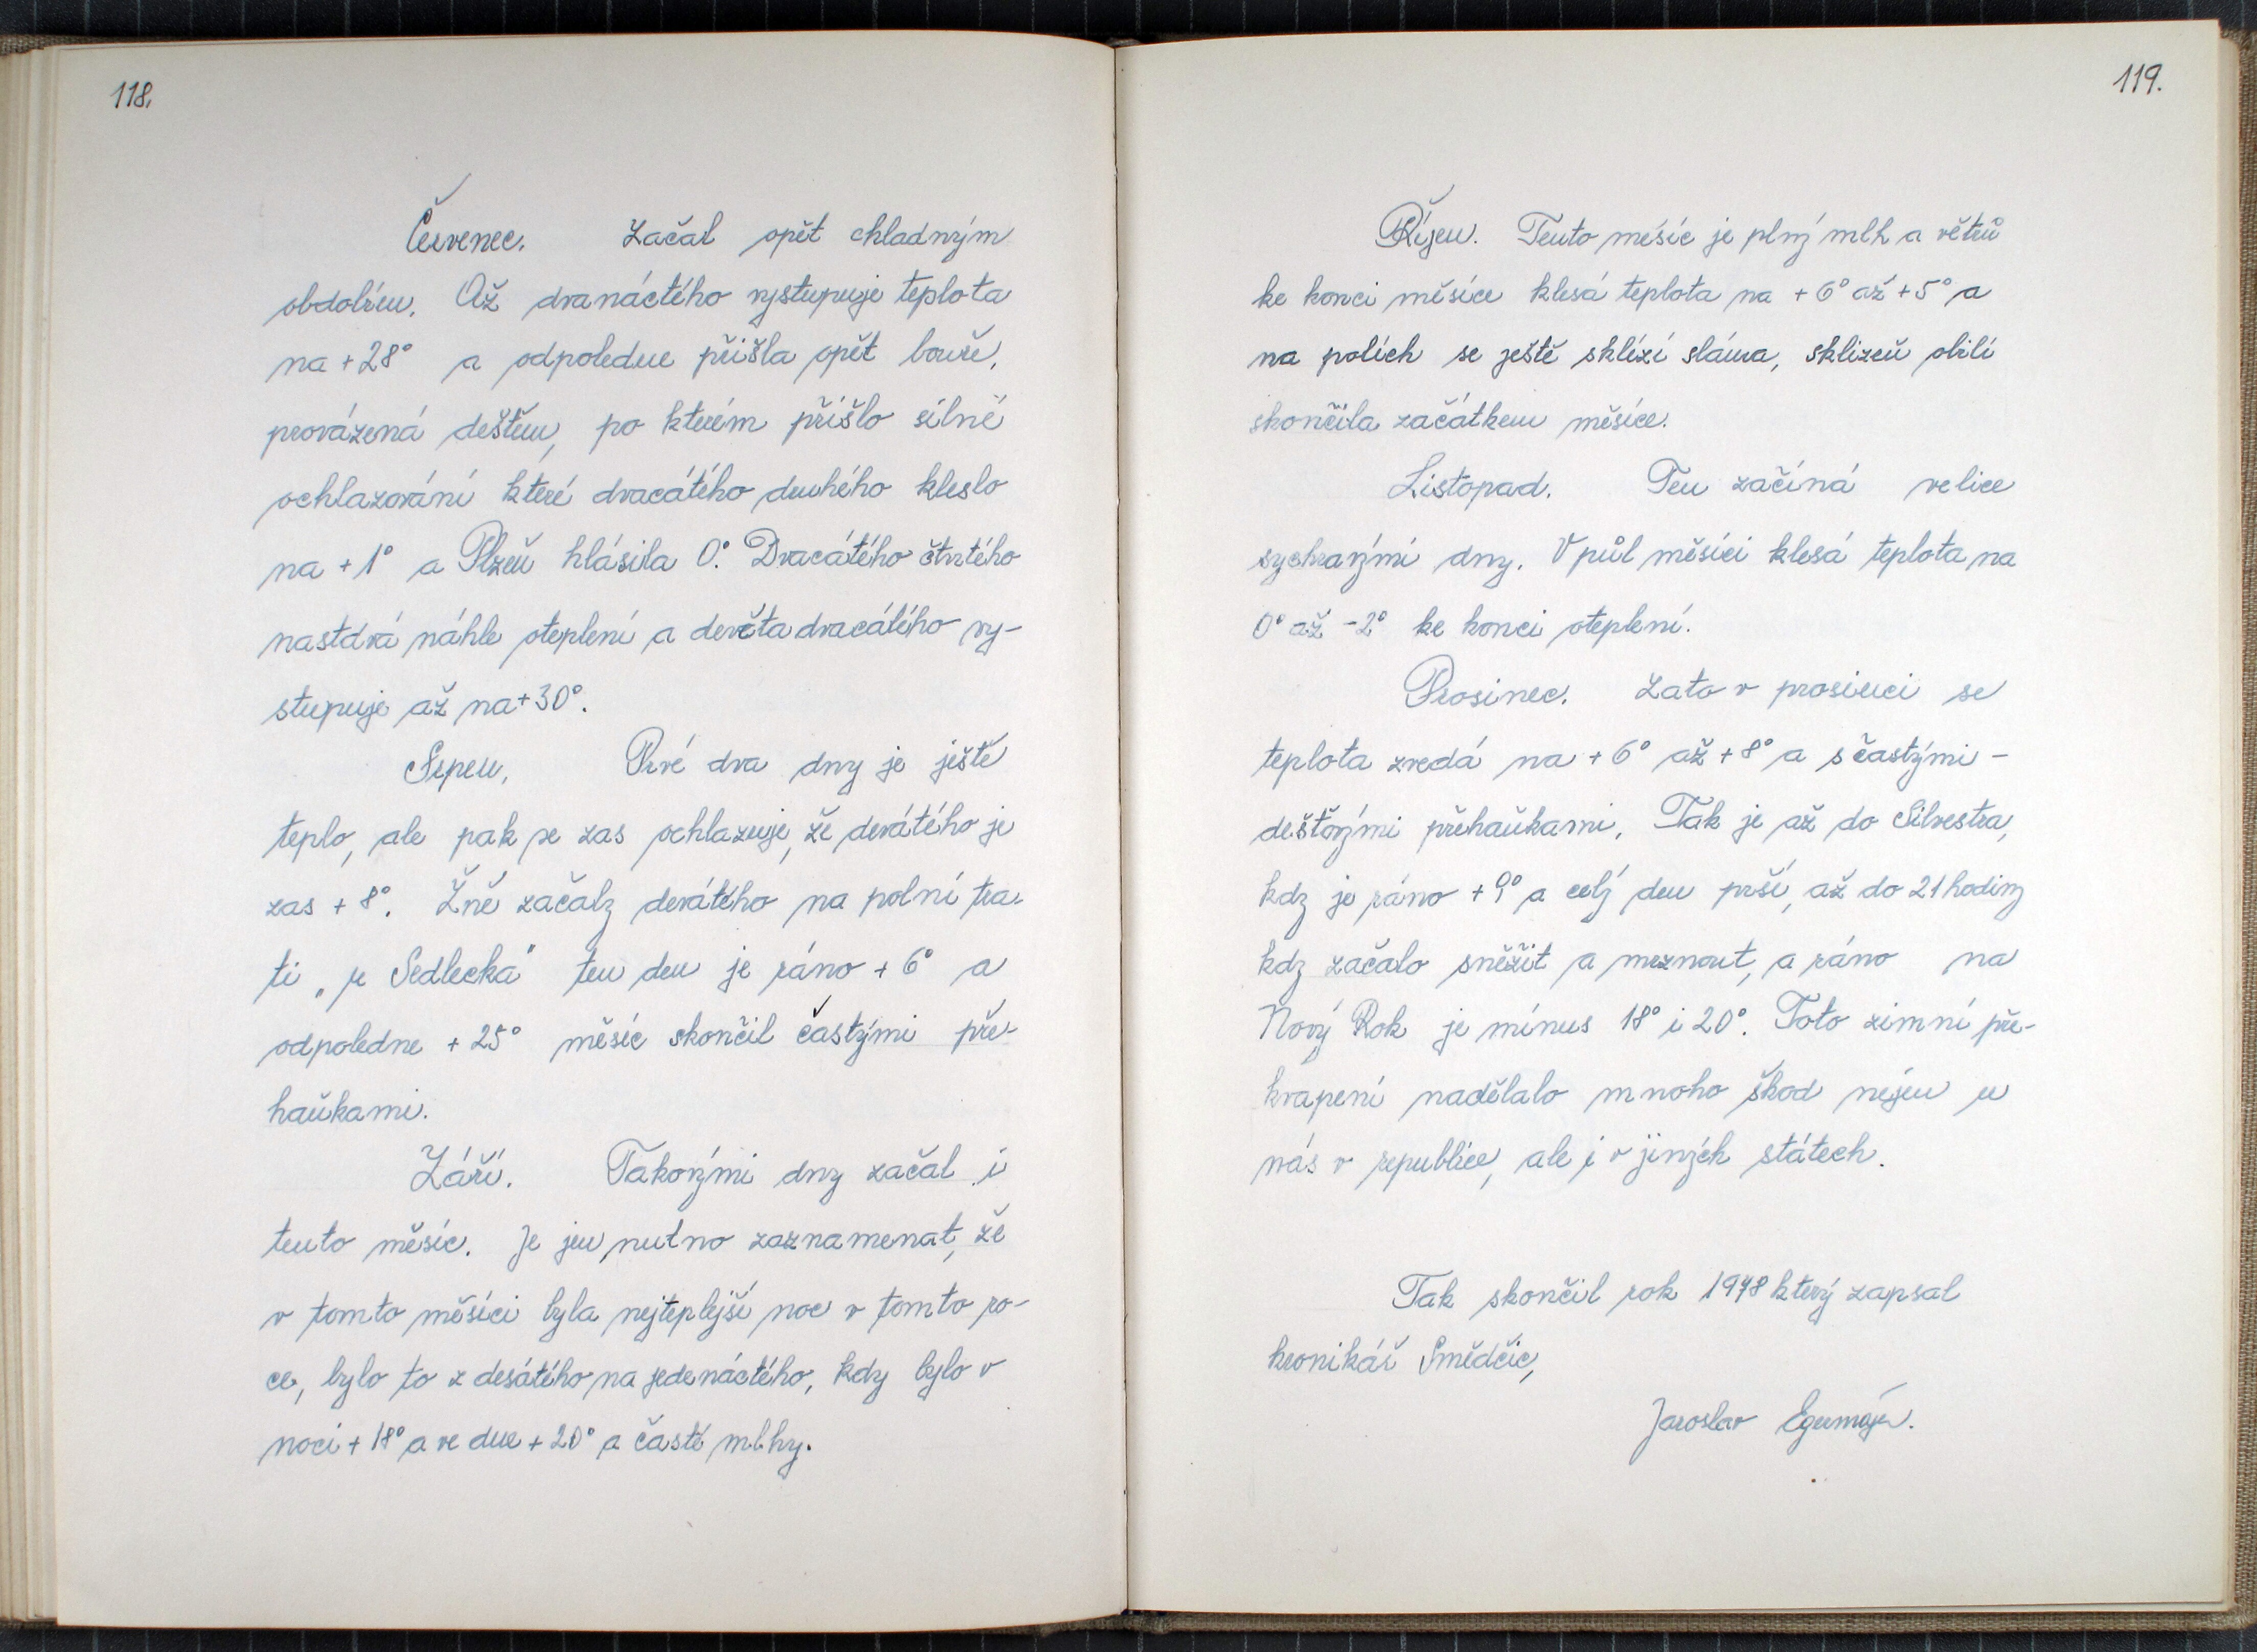 118.
Červenec. Začal opět chladným
obdobím. Až dvanáctého vystupuje teplota
na +28° a odpoledne přišla opět bouře,
provázená deštěm, po kterém přišlo silné
ochlazování které dvacátého druhého kleslo
na +1° a Plzeň hlásila 0°. Dvacátého čtvrtého
nastává náhle oteplení a devětadvacátého vy-
stupuje až na +30°.
Srpen. Prvé dva dny je ještě
teplo, ale pak se zas ochlazuje, že devátého je
zas +8°. Žně začaly devátého na polní tra-
ti „u Sedlecka" ten den je ráno +6° a
odpoledne +25° měsíc skončil častými pře-
haňkami.
Září. Takovými dny začal i
tento měsíc. Je jen nutno zaznamenat, že
v tomto měsíci byla nejteplejší noc v tomto ro-
ce, bylo to z desátého na jedenáctého, kdy bylo v
noci +18° a ve dne +20° a časté mlhy.
119.
Říjen. Tento měsíc je plný mlh a větrů
ke konci měsíce klesá teplota na +6° až +5° a
na polích se ještě sklízí sláma, sklizeň obilí
skončila začátkem měsíce.
Listopad. Ten začíná velice
sychravými dny. V půl měsíci klesá teplota na
0° až -2° ke konci oteplení.
Prosinec. Zato v prosinci se
teplota zvedá na +6° až +8° a s častými-
dešťovými přehaňkami. Tak je až do Silvestra,
kdy je ráno +9° a celý den prší, až do 21 hodiny
kdy začalo sněžit a mrznout, a ráno na
Nový Rok je mínus 18° i 20°. Toto zimní pře-
kvapení nadělalo mnoho škod nejen u
nás v republice, ale i v jiných státech.
Tak skončil rok 1978 který zapsal
kronikář Smědčic,
Jaroslav